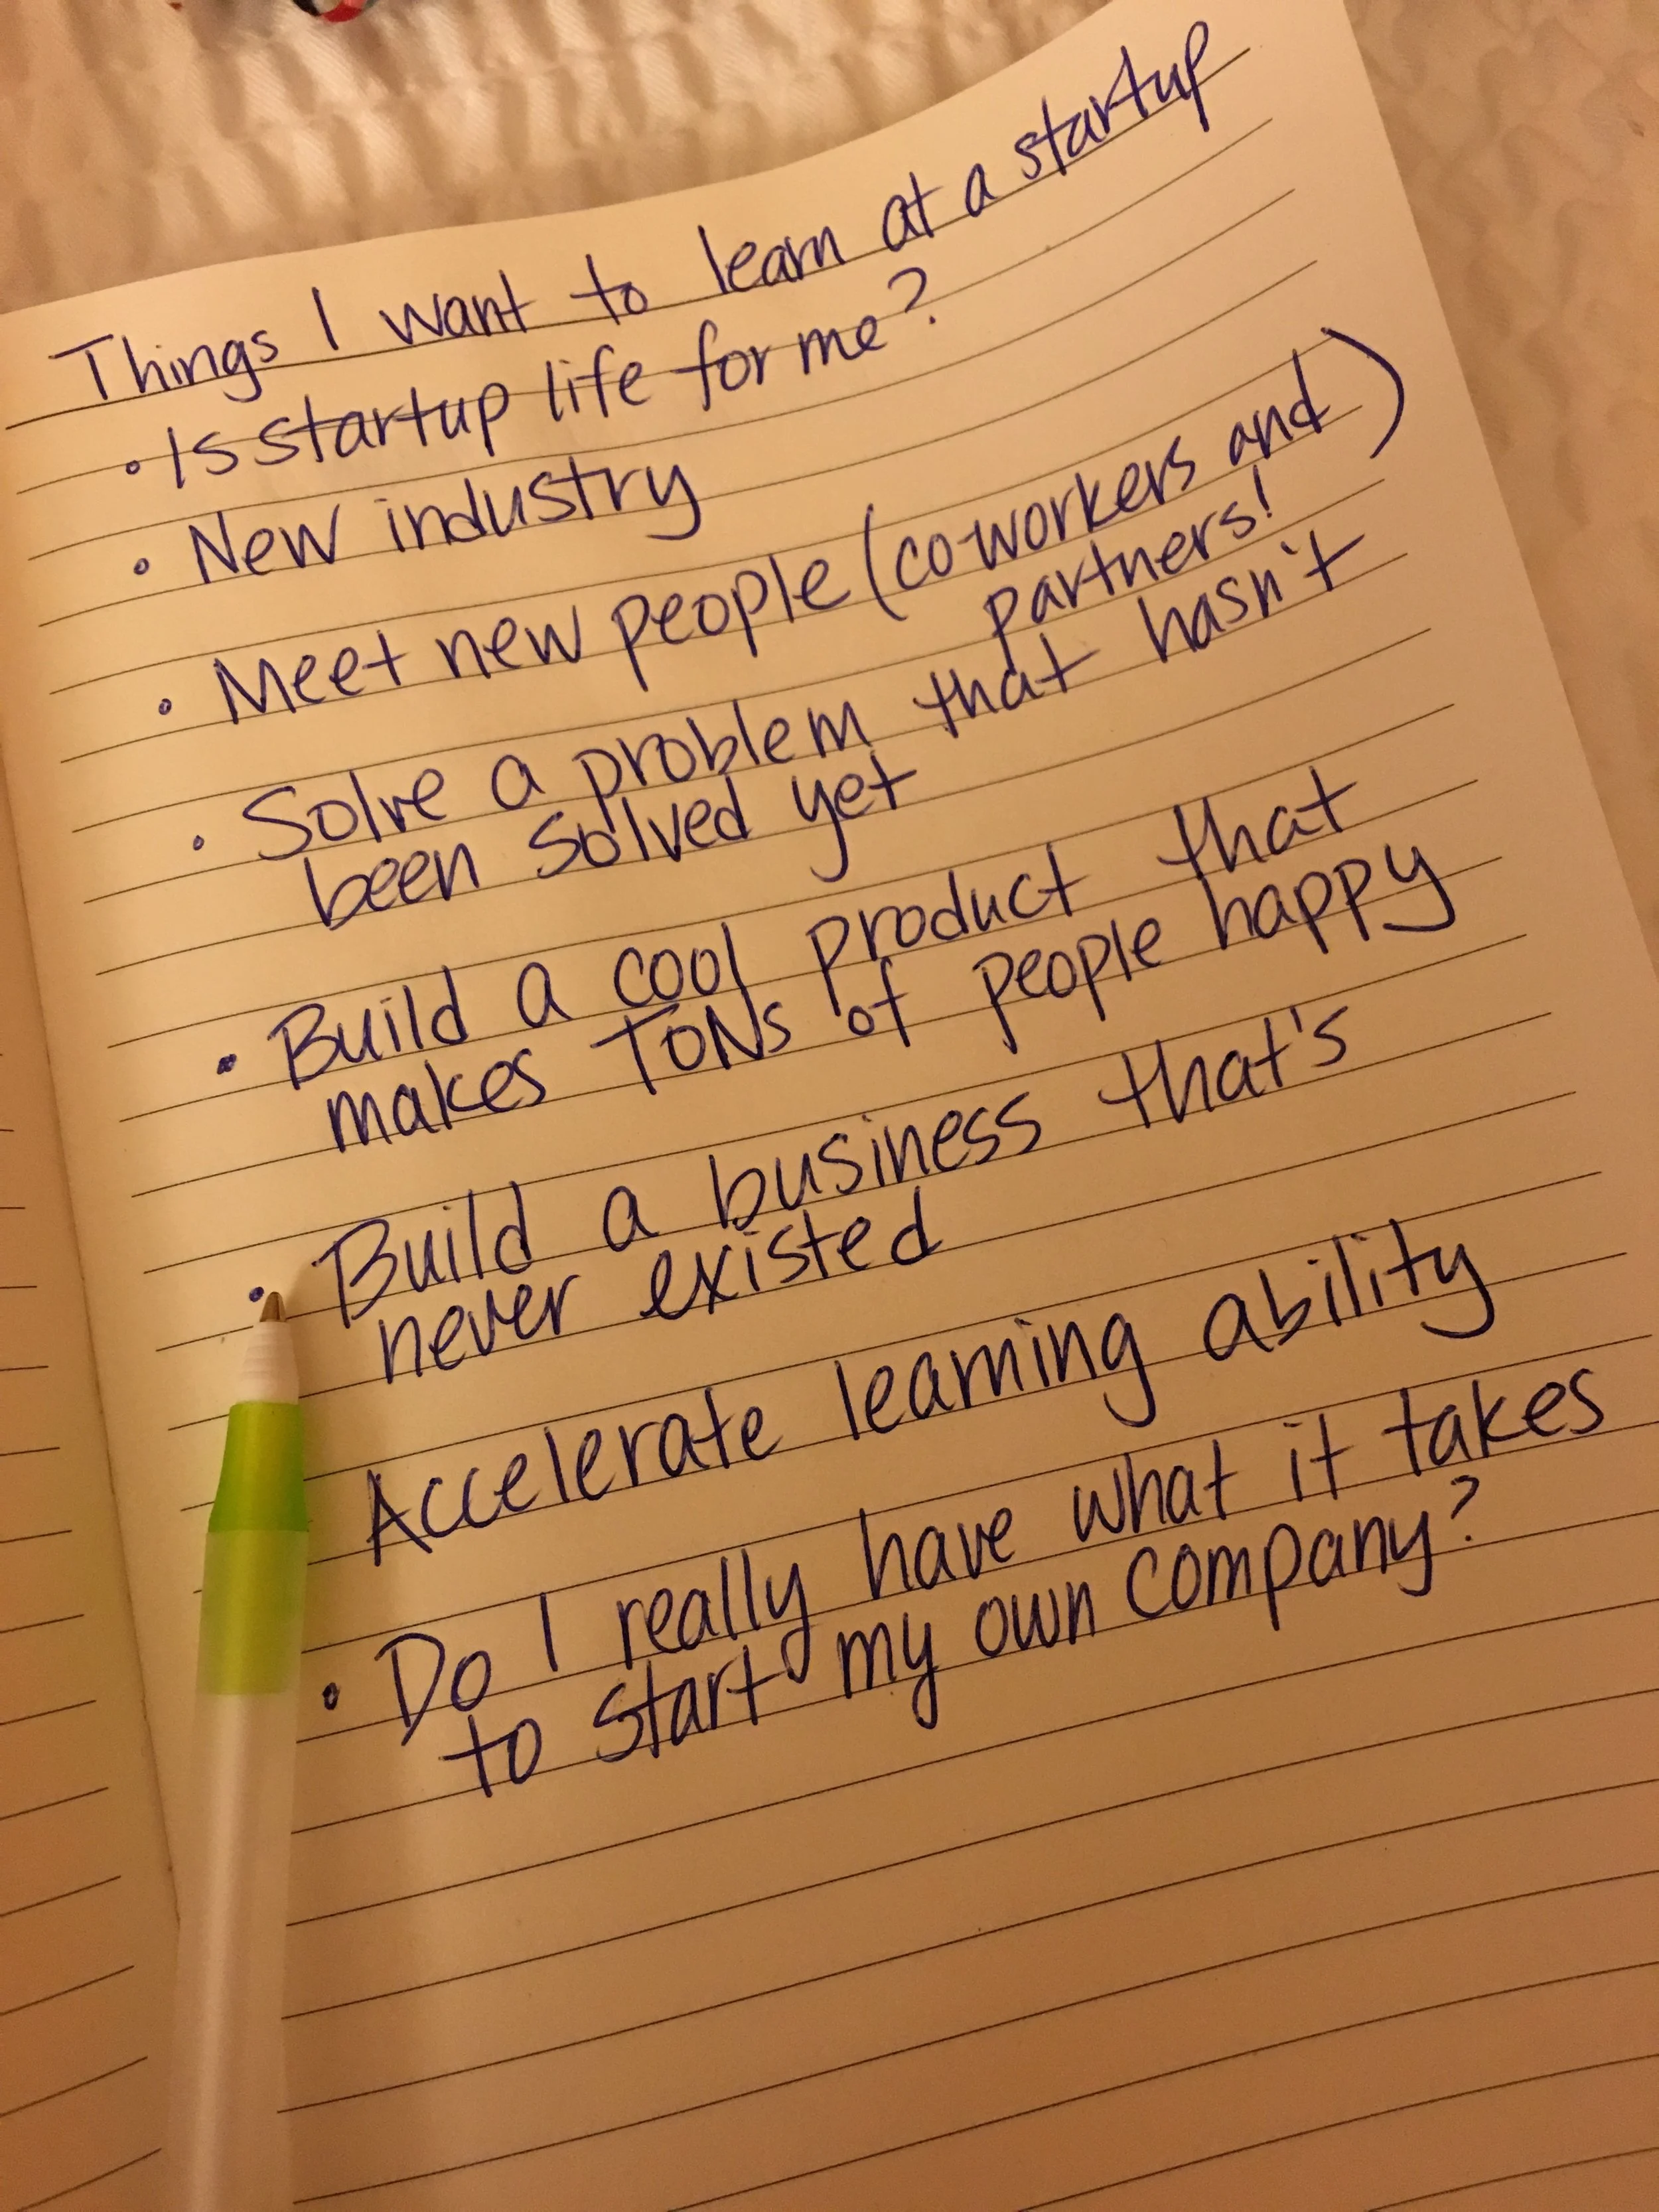 Things I want to learn at a startup
• Is startup life for me?
• New industry
• Meet new people (co-workers and)
partners!
• Solve a problem that hasn't
been solved yet
• Build a cool product that
makes TONs of people happy
• Build a business that's
never existed
Accelerate learning ability
• Do I really have what it takes
to start my own company?